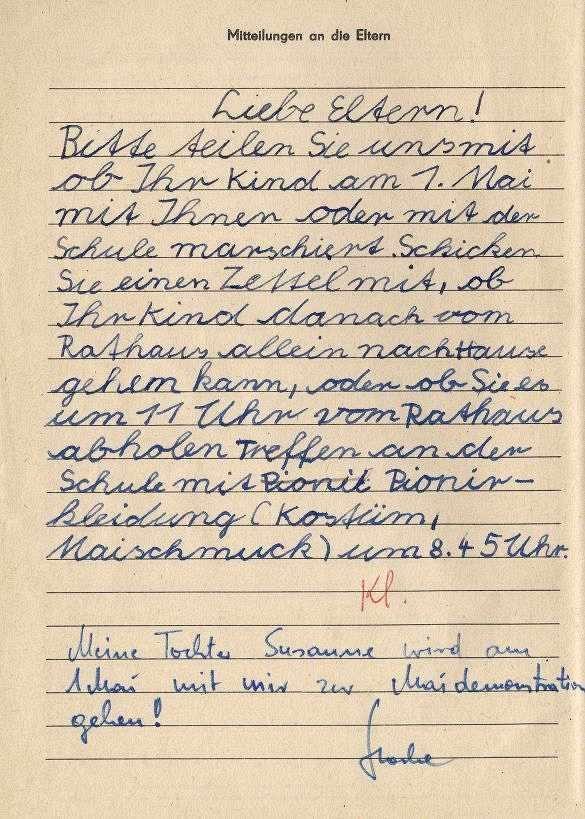 Mitteilungen an die Eltern
Liebe Eltern!
Bitte teilen Sie uns mit
ob Ihr Kind am 1. Mai
mit Ihnen oder mit der
Schule marschiert. Schicken
Sie einen Zettel mit, ob
Ihr Kind danach vom
Rathaus allein nach Hause
gehem kann, oder ob Sie es
um 11 Uhr vom Rathaus
abholen Treffen an der
Schule mit Pionir-
kleidung (Kostüm,
Maischmuck) um 8.45 Uhr.
Kl.
Meine Tochter Susanne wird am
1 Mai mit mir zur Maidemonstration
gehen!